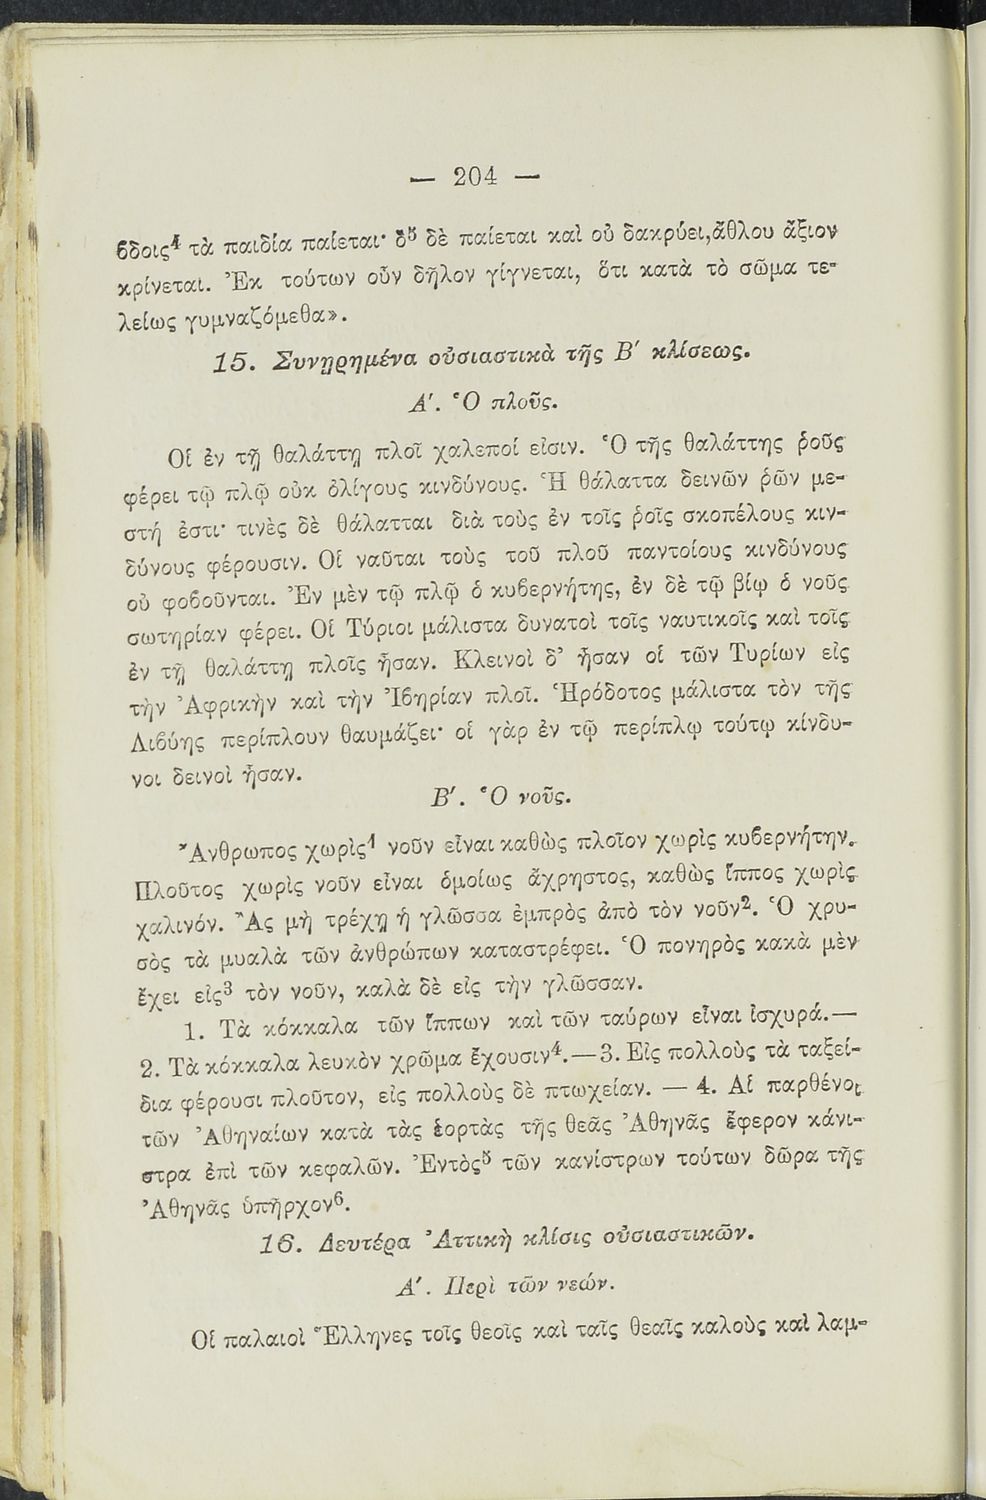 — 204 —
βδοις⁴ τὰ παιδία παίεται· ὃ⁵ δὲ παίεται καὶ οὐ δακρύει, ἄθλου ἄξιον
κρίνεται. Ἐκ τούτων οὖν δῆλον γίγνεται, ὅτι κατὰ τὸ σῶμα τε-
λείως γυμναζόμεθα».
15. Συνῃρημένα οὐσιαστικὰ τῆς Β′ κλίσεως.
Α′. Ὁ πλοῦς.
Οἱ ἐν τῇ θαλάττῃ πλοῖ χαλεποί εἰσιν. Ὁ τῆς θαλάττης ῥοῦς
φέρει τῷ πλῷ οὐκ ὀλίγους κινδύνους. Ἡ θάλαττα δεινῶν ῥῶν με-
στή ἐστι· τινὲς δὲ θάλατται διὰ τοὺς ἐν τοῖς ῥοῖς σκοπέλους κιν-
δύνους φέρουσιν. Οἱ ναῦται τοὺς τοῦ πλοῦ παντοίους κινδύνους
οὐ φοβοῦνται. Ἐν μὲν τῷ πλῷ ὁ κυβερνήτης, ἐν δὲ τῷ βίῳ ὁ νοῦς
σωτηρίαν φέρει. Οἱ Τύριοι μάλιστα δυνατοὶ τοῖς ναυτικοῖς καὶ τοῖς
ἐν τῇ θαλάττῃ πλοῖς ἦσαν. Κλεινοὶ δ' ἦσαν οἱ τῶν Τυρίων εἰς
τὴν Ἀφρικὴν καὶ τὴν Ἰβηρίαν πλοῖ. Ἡρόδοτος μάλιστα τὸν τῆς
Λιβύης περίπλουν θαυμάζει· οἱ γὰρ ἐν τῷ περίπλῳ τούτῳ κίνδυ-
νοι δεινοὶ ἦσαν.
Β′. Ὁ νοῦς.
Ἄνθρωπος χωρὶς¹ νοῦν εἶναι καθὼς πλοῖον χωρὶς κυβερνήτην.
Πλοῦτος χωρὶς νοῦν εἶναι ὁμοίως ἄχρηστος, καθὼς ἵππος χωρὶς
χαλινόν. Ἂς μὴ τρέχῃ ἡ γλῶσσα ἐμπρὸς ἀπὸ τὸν νοῦν². Ὁ χρυ-
σὸς τὰ μυαλὰ τῶν ἀνθρώπων καταστρέφει. Ὁ πονηρὸς κακὰ μὲν
ἔχει εἰς³ τὸν νοῦν, καλὰ δὲ εἰς τὴν γλῶσσαν.
1. Τὰ κόκκαλα τῶν ἵππων καὶ τῶν ταύρων εἶναι ἰσχυρά.—
2. Τὰ κόκκαλα λευκὸν χρῶμα ἔχουσιν⁴.—3. Εἰς πολλοὺς τὰ ταξεί-
δια φέρουσι πλοῦτον, εἰς πολλοὺς δὲ πτωχείαν. — 4. Αἱ παρθένοι
τῶν Ἀθηναίων κατὰ τὰς ἑορτὰς τῆς θεᾶς Ἀθηνᾶς ἔφερον κάνι-
στρα ἐπὶ τῶν κεφαλῶν. Ἐντὸς⁵ τῶν κανίστρων τούτων δῶρα τῆς
Ἀθηνᾶς ὑπῆρχον⁶.
16. Δευτέρα Ἀττικὴ κλίσις οὐσιαστικῶν.
Α′. Περὶ τῶν νεών.
Οἱ παλαιοὶ Ἕλληνες τοῖς θεοῖς καὶ ταῖς θεαῖς καλοὺς καὶ λαμ-